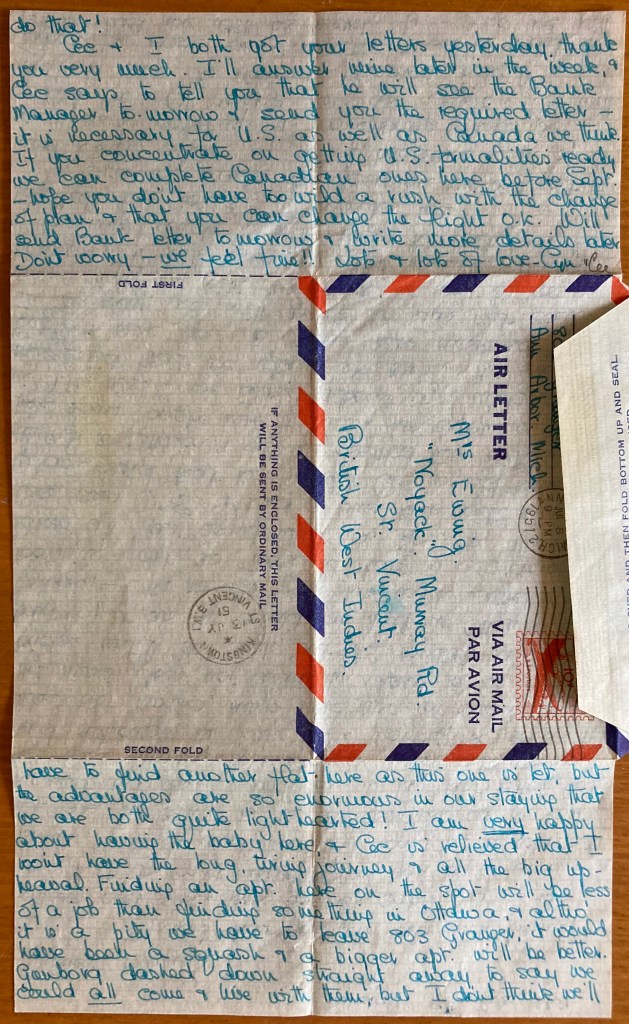 do that!
Cee & I both got your letters yesterday, thank
you very much. I'll answer mine later in the week, &
Cee says to tell you that he will see the Bank
Manager to-morrow & send you the required letter –
it is necessary for U.S. as well as Canada we think.
If you concentrate on getting U.S. formalities ready
we can complete Canadian ones here before Sept.
– hope you don't have too wild a rush with the change
of plan & that you can change the flight o.k. Will
send Bank letter tomorrow & write more details later
Don't worry – we feel fine!! Lots & lots of love – Cyn & Cee
FIRST FOLD
IF ANYTHING IS ENCLOSED, THIS LETTER
WILL BE SENT BY ORDINARY MAIL
KINGSTOWN
13 JY
51
ST VINCENT B.W.I.
SECOND FOLD
Granger
Ann Arbor. Mich.
AIR LETTER
VIA AIR MAIL
PAR AVION
MICH. 2
PM
1951
10¢
Mrs Ewing.
"Noyack". Murray Rd.
St. Vincent.
British West Indies.
AND THEN FOLD BOTTOM UP AND SEAL.
have to find another flat here as this one is let, but
the advantages are so enormous in our staying that
we are both quite light hearted! I am very happy
about having the baby here & Cee is relieved that I
won't have the long, tiring journey & all the big up-
heaval. Finding an apt. here on the spot will be less
of a job than finding something in Ottawa, & altho'
it is a pity we have to leave 803 Granger, it would
have been a squash & a bigger apt. will be better.
Gonborg dashed down straight away to say we
could all come & live with them, but I don't think we'll